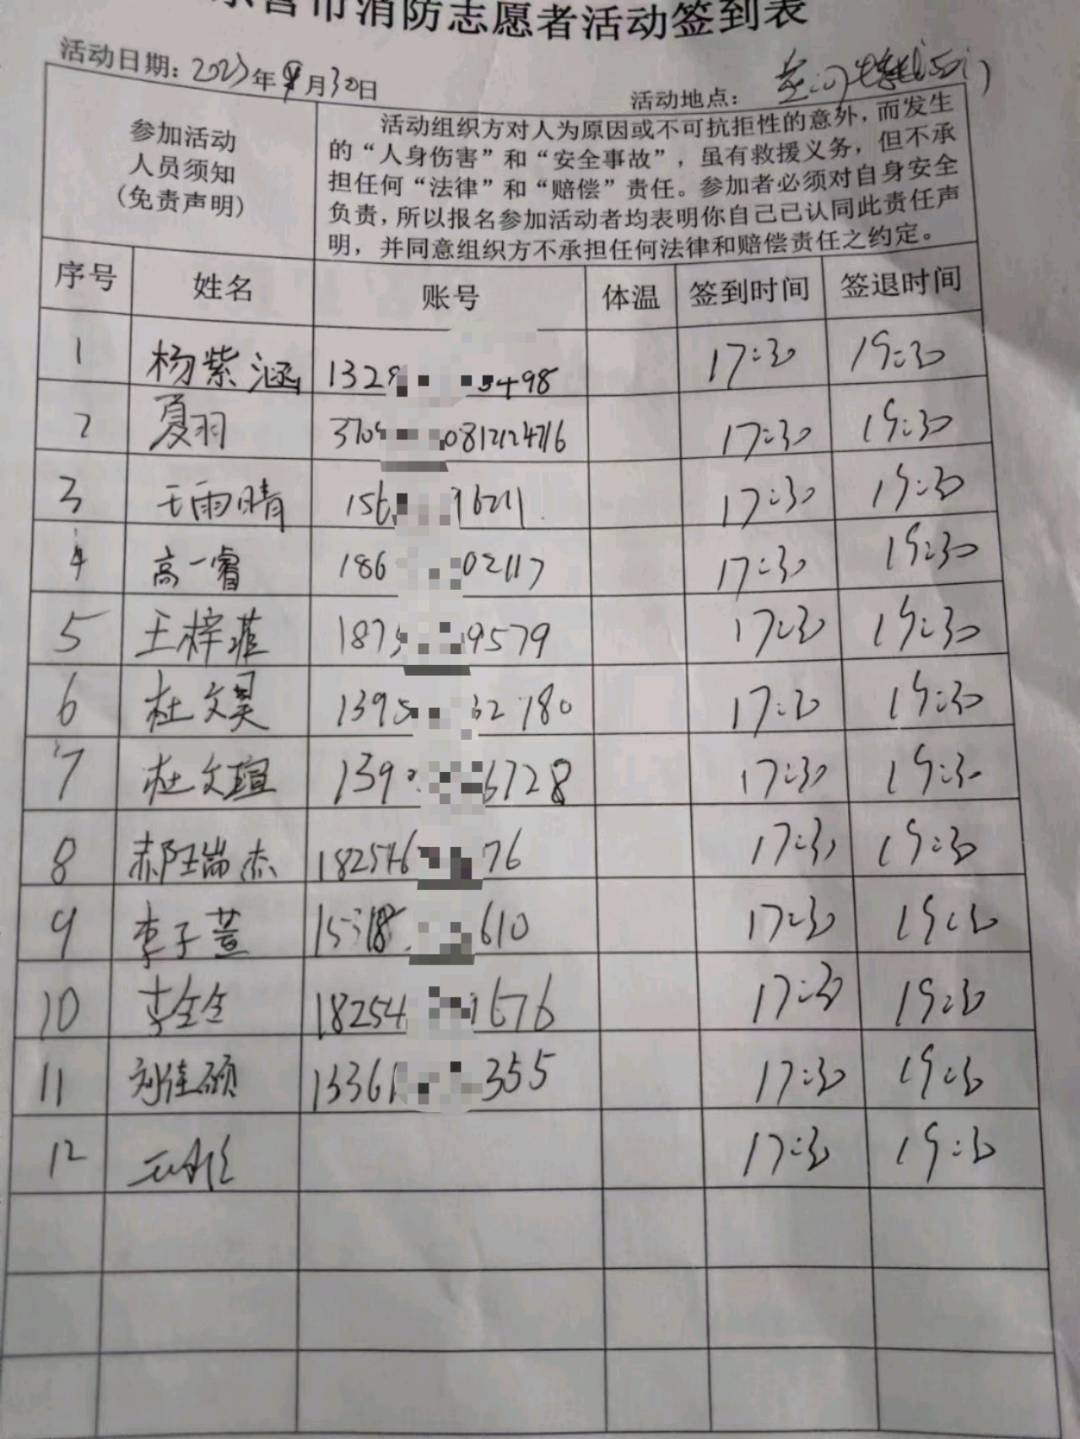 营市消防志愿者活动签到表
活动日期：2023年9月30日
活动地点：
参加活动
人员须知
(免责声明)
活动组织方对人为原因或不可抗拒性的意外，而发生
的“人身伤害”和“安全事故”，虽有救援义务，但不承
担任何“法律”和“赔偿”责任。参加者必须对自身安全
负责，所以报名参加活动者均表明你自己已认同此责任声
明，并同意组织方不承担任何法律和赔偿责任之约定。
序号 姓名 账号 体温 签到时间 签退时间
1 杨紫涵 132 498 17:30 19:30
2 夏羽 370 17:30 19:30
3 王雨晴 156 6211 17:30 19:30
4 高一睿 186 02117 17:30 19:30
5 王梓菲 187 9579 17:30 19:30
6 杜文昊 139 32780 17:30 19:30
7 杜文瑄 139 6728 17:30 19:30
8 瑞杰 182546 76 17:30 19:30
9 李子萱 15318 610 17:30 19:30
10 李全全 18254 1676 17:30 19:30
11 刘佳硕 13361 355 17:30 19:30
12 17:30 19:30